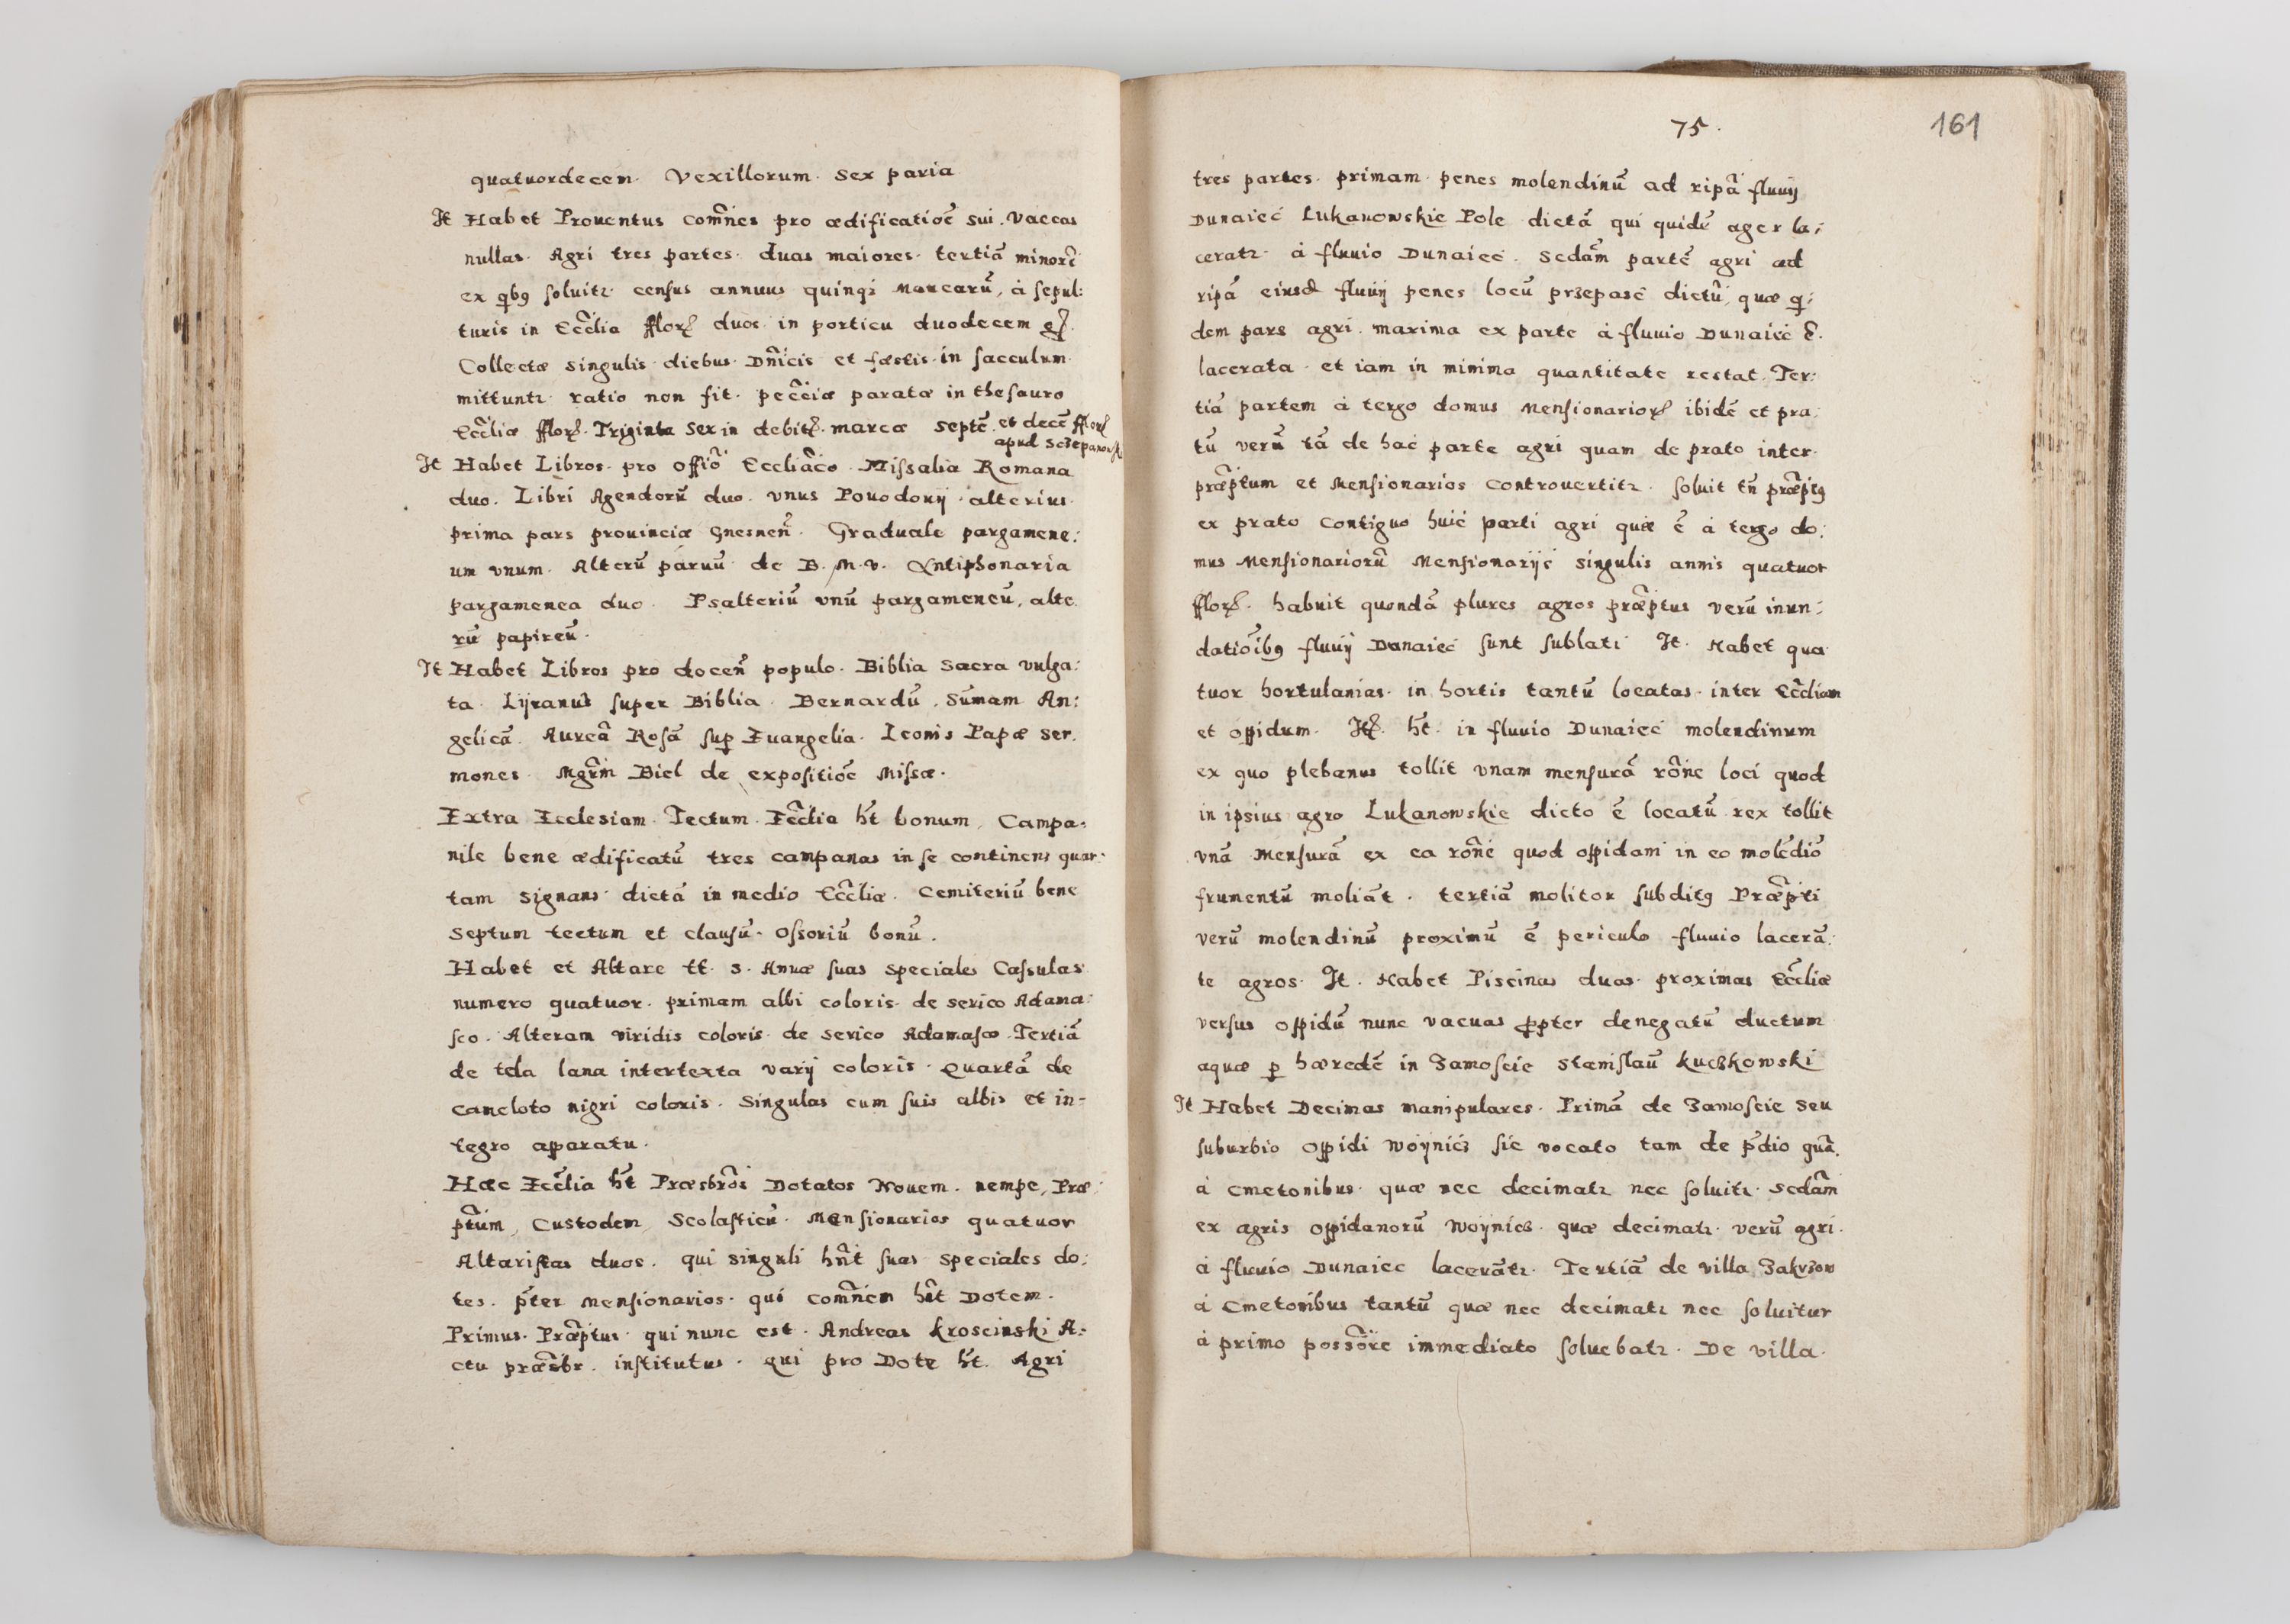 quatuordecem. Vexillorum. sex paria
It Habet Prouentus com̃nes pro ædificatiõe sui. Vaccas
nullas. Agri tres partes. duas maiores. tertiã minorẽ
ex qbꝯ soluitꝛ. census annuus quinqꝫ marcarũ, à sepul:
turis in Eccl̃ia fflorꝝ duos in porticu duodecem gꝝ.
Collectæ singulis diebus Dñicis et fæstis in sacculum
mittuntꝛ ratio non fit. pecc̃iæ paratæ in thesauro
Eccl̃iæ fflorꝝ. Triginta sex in debitꝭ. marcæ septẽ. et decẽ fflorꝝ
apud Sczepanowsk
It Habet Libros. pro offiõ Eccliãco. Missalia Romana
duo. Libri Agendorũ duo. vnus Powodowij. alterius
prima pars prouinciæ Gnesneñ. Graduale pargamene:
um vnum. Alterũ paruũ de B. M. V. Antiphonaria
pargamenea duo. Psalteriũ vnũ pargameneũ, alte
rũ papireũ.
It Habet Libros pro doceñ populo. Biblia sacra vulga:
ta. Lijranus super Biblia. Bernardũ. Sũmam An:
gelicã. Aureã Rosã suꝑ Euangelia. Leonis Papæ ser.
mones. Mgr̃m Biel de expositiõe Missæ.
Extra Ecclesiam. Tectum. Eccl̃ia ht̃ bonum, Campa=
nile bene ædificatũ tres campanas in se continens quar:
tam signans dictã in medio Eccl̃iæ. Cemiteriũ bene
septum tectum et clausũ. Ossoriũ bonũ.
Habet et Altare tt. S. Annæ suas speciales Cassulas
numero quatuor. primam albi coloris de serico Adama:
sco. Alteram viridis coloris de serico Adamasco. Tertiã
de tela lana intertexta varij coloris. Quartã de
cameloto nigri coloris. Singulas cum suis albis et in=
tegro apparatu.
Hæc Eccl̃ia ht̃ Præsbr̃os Dotatos Nouem. nempe, Præ:
pt̃um, Custodem, Scolasticũ. Mansionarios quatuor
Altaristas duos. qui singuli hñt suas speciales do:
tes. p̃ter Mensionarios. qui com̃nem hñt Dotem.
Primus. Præp̃tus qui nunc est. Andreas Kroscinski A:
ctu præsbr̃. institutus. qui pro Dote ht̃. Agri
75.
161
tres partes. primam. penes molendinũ ad ripã fluuij
Dunaiec Lukanowskie Pole dictã qui quidẽ ager la:
ceratꝛ à fluuio Dunaiec. Scdãm partẽ agri ad
ripã eiusd fluuij penes locũ przepasc dictũ, quæ q:
dem pars agri. maxima ex parte à fluuio Dunaiec ẽ.
lacerata et iam in minima quantitate restat. Ter:
tiã partem à tergo domus Mensionariorꝝ ibidẽ et pra:
tũ verũ tã de hac parte agri quam de prato inter
præp̃tum et Mensionarios controuertitꝛ. soluit tñ præp̃tꝯ
ex prato contiguo huic parti agri quæ ẽ à tergo do:
mus Mensionariorũ Mensionarijs singulis annis quatuor
fflorꝝ. habuit quondã plures agros præp̃tus verũ inun:
datiõibꝯ fluuij Dunaiec sunt sublati It. Habet qua
tuor hortulanias. in hortis tantũ locatas. inter Eccl̃iam
et oppidum. Itꝭ. ht̃. in fluuio Dunaiec molendinum
ex quo plebanus tollit vnam mensurã rõne loci quod
in ipsius agro Lukanowskie dicto ẽ locatũ rex tollit
vnã Mensurã ex ea rõne quod oppidani in eo molẽdiõ
frumentũ moliãt. tertiã molitor subditꝯ Præp̃ti
verũ molendinũ proximũ ẽ periculo fluuio lacerã:
te agros. It. Habet Piscinas duas proximas Eccl̃iæ
versus oppidũ nunc vacuas ꝓpter denegatũ ductum
aquæ ꝑ hæredẽ in Zamoscie Stanislaũ Kuczkowski
It Habet Decimas manipulares. Primã de Zamoscie seu
suburbio oppidi Woynicz sic vocato tam de p̃dio quã
à cmetonibus quæ nec decimatꝛ nec soluitꝛ. Scdãm
ex agris oppidanorũ Woynicz. quæ decimatꝛ. verũ agri
à fluuio Dunaiec lacerãtꝛ. Tertiã de villa Zakrzow
à Cmetonibus tantũ quæ nec decimatꝛ nec soluitur
à primo possõre immediato soluebatꝛ. De villa.